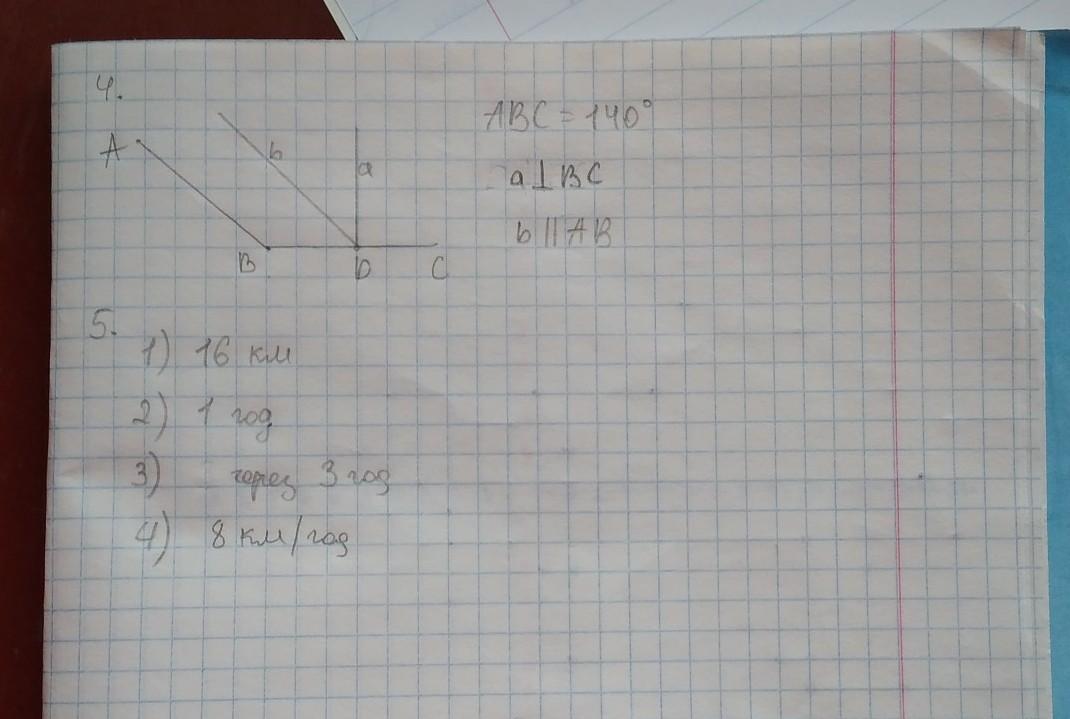 4.
A
b
a
B
D
C
ABC = 140°
a ⊥ BC
b || AB
5.
1) 16 км
2) 1 год
3) через 3 год
4) 8 км/год